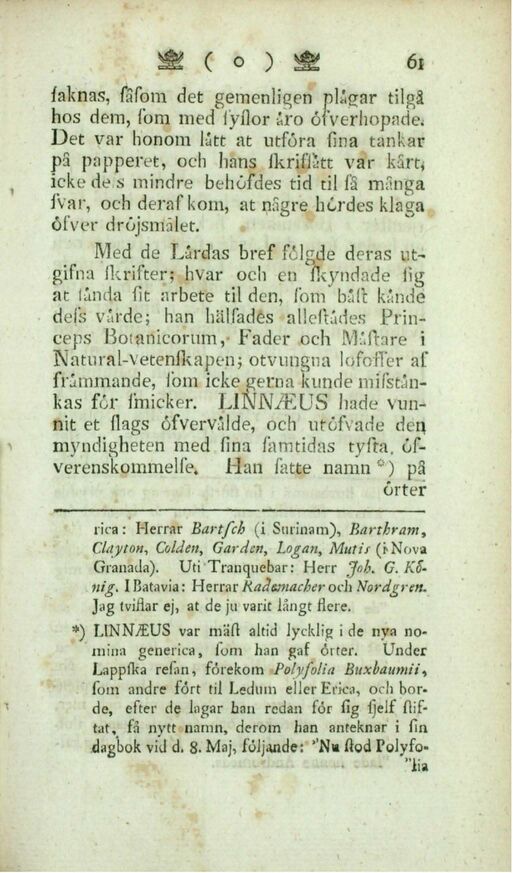 ( o ) 61
ſaknas, ſåſom det gemenligen plågar tilgå
hos dem, ſom med ſyſlor åro öfverhopade.
Det var honom lått at utföra ſina tankar
på papperet, och hans ſkrifſått var kårt,
icke deſs mindre behöfdes tid til ſå många
ſvar, och deraf kom, at någre hördes klaga
öfver dröjsmålet.
Med de Lårdas bref följde deras ut-
gifna ſkrifter; hvar och en ſkyndade ſig
at ſånda ſit arbete til den, ſom båſt kånde
deſs vårde; han hålſades alleſtådes Prin-
ceps Botanicorum, Fader och Måſtare i
Natural-vetenſkapen; otvungna lofoffer af
fråmmande, ſom icke gerna kunde miſstån-
kas för ſmicker. LINNÆUS hade vun-
nit et ſlags öfvervålde, och utöfvade den
myndigheten med ſina ſamtidas tyſta öf-
verenskommelſe. Han ſatte namn *) på
örter
rica: Herrar Bartſch (i Surinam), Barthram,
Clayton, Colden, Garden, Logan, Mutis (i Nova
Granada). Uti Tranquebar: Herr Joh. G. Kö-
nig. I Batavia: Herrar Rademacher och Nordgren.
Jag tviflar ej, at de ju varit långt flere.
*) LINNÆUS var måſt altid lycklig i de nya no-
mina generica, ſom han gaf örter. Under
Lappſka reſan, förekom Polyfolia Buxbaumii,
ſom andre fört til Ledum eller Erica, och bor-
de, efter de lagar han redan för ſig ſjelf ſtif-
tat, få nytt namn, derom han anteknar i ſin
dagbok vid d. 8. Maj, följande: "Nu ſtod Polyfo-
"lia